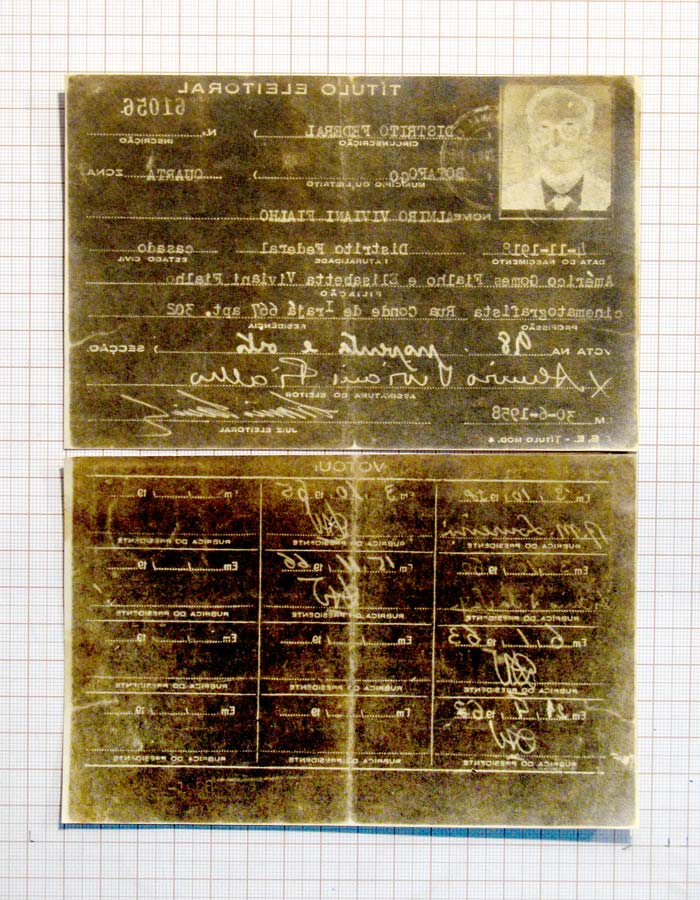 TÍTULO ELEITORAL
DISTRITO FEDERAL ) N.º 61056
CIRCUNSCRIÇÃO INSCRIÇÃO
BOTAFOGO ) QUARTA ZONA
MUNICÍPIO OU DISTRITO
NOME ALMIRO VIVIANI FIALHO
4-11-1918 Distrito Federal casado
DATA DO NASCIMENTO NATURALIDADE ESTADO CIVIL
Américo Gomes Fialho e Elisabetta Viviani Fialho
FILIAÇÃO
cinematografista Rua Conde de Irajá 667 apt. 302
PROFISSÃO RESIDÊNCIA
VOTA NA 98 noventa e oito ) SECÇÃO.
x Almiro Viviani Fialho
ASSINATURA DO ELEITOR
EM 30-6-1958
JUIZ ELEITORAL
S. E. - TÍTULO MOD. 4
VOTOU:
Em 3/10/19 Em 3/10/1965 Em / /19
RUBRICA DO PRESIDENTE RUBRICA DO PRESIDENTE RUBRICA DO PRESIDENTE
Em /19 Em 15/11/1966 Em / /19
RUBRICA DO PRESIDENTE RUBRICA DO PRESIDENTE RUBRICA DO PRESIDENTE
Em 6/1/1963 Em / /19 Em / /19
RUBRICA DO PRESIDENTE RUBRICA DO PRESIDENTE RUBRICA DO PRESIDENTE
Em /4/19 Em / /19 Em / /19
RUBRICA DO PRESIDENTE RUBRICA DO PRESIDENTE RUBRICA DO PRESIDENTE